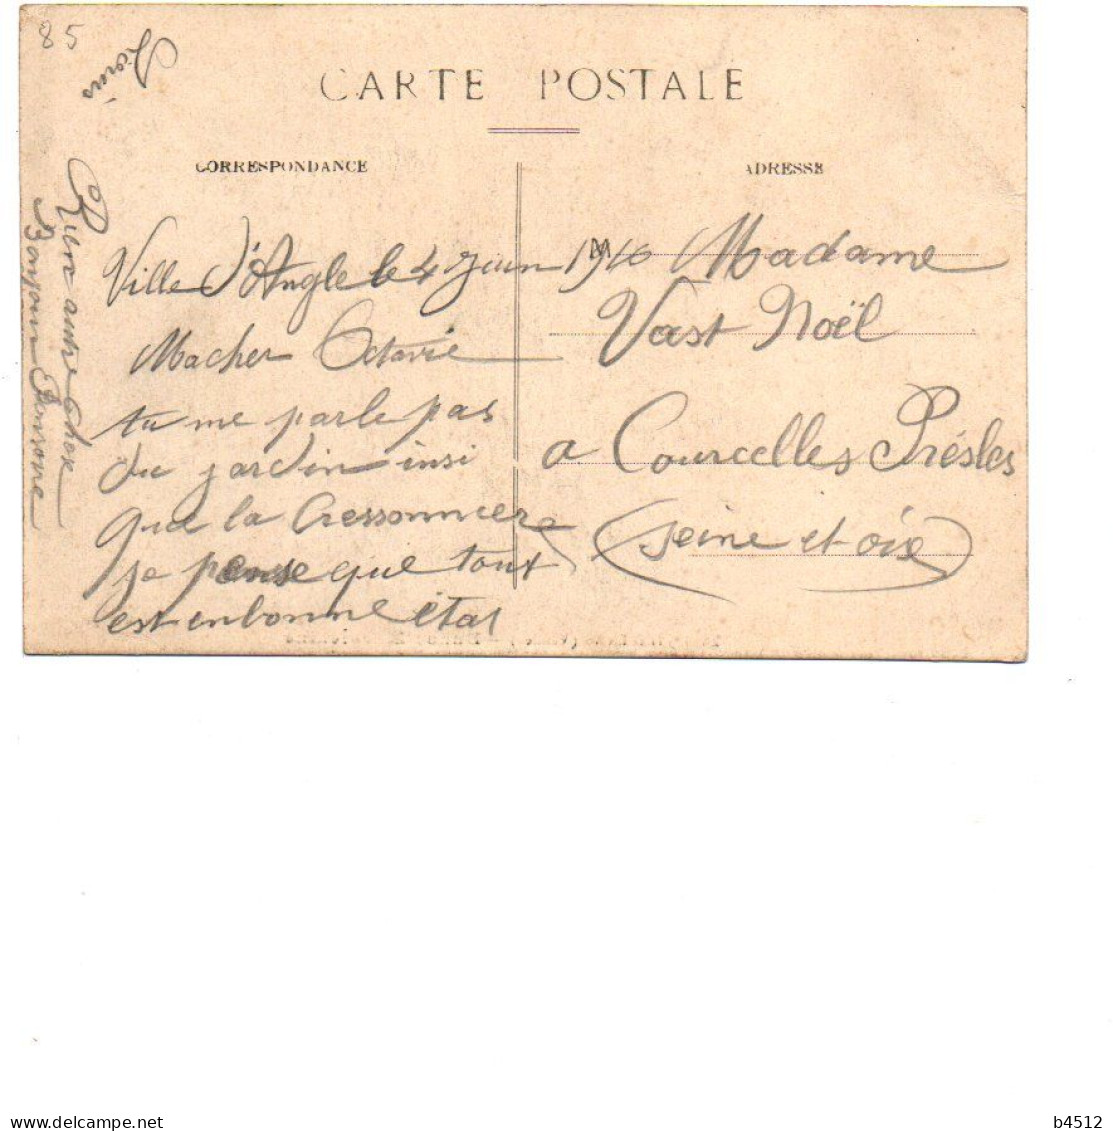 85
Louis
CARTE POSTALE
CORRESPONDANCE
ADRESSE
Ville d'Angle le 4 Juin 1916
Macher Octavie
tu me parle pas
du jardin insi
que la Cressonniere
je pense que tout
est en bonne état
Rien autre chose
Bonjour
Madame
Vast Noël
a Courcelles Présles
(seine et oise)
b4512